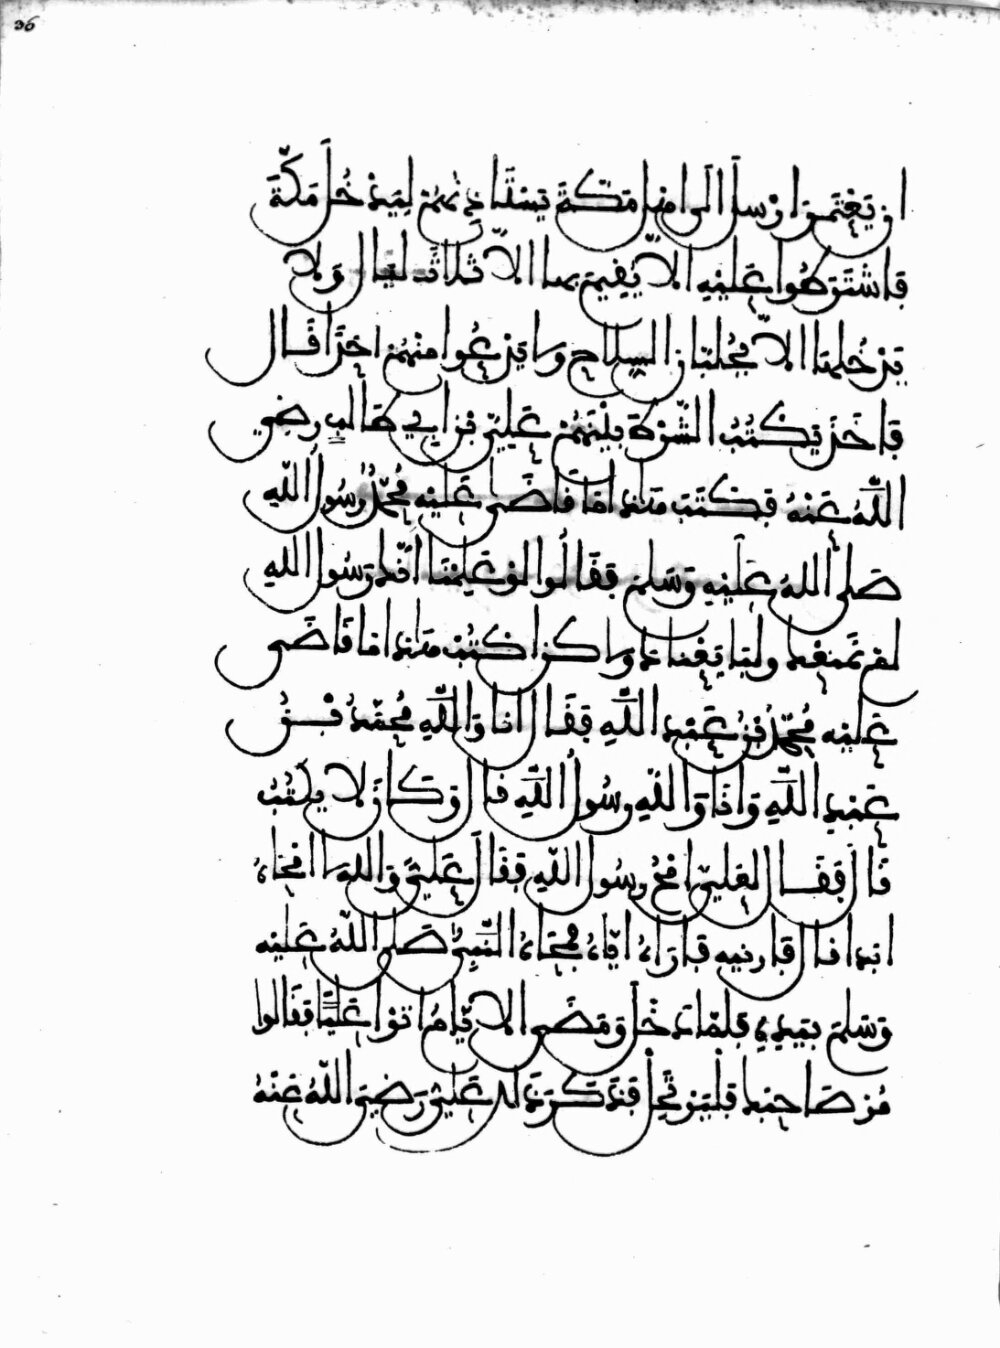 36
ان يَعْتَمِرَ ارْسلَ الَى اهل مَكّةَ يَسْتَاذِنُهُمْ لِيَدْخُلَ مَكّةَ
فَاشْتَرَطُوا عَلَيْهِ الّا يُقِيمَ بها الّا ثَلَاثَ ليَالٍ وَلا
يَدْخُلهَا الّا بِجُلبّانِ السِلَاحِ ولا يَدْعُوا منْهُمْ احَدًا قَال
فَاخَذَ يَكْتُبُ الشّرْطَ بَيْنَهُمْ عَلِيّ بْنُ ابِي طَالبٍ رضِي
اللّهُ عَنْهُ فكَتَبَ هَذَا مَا قَاضَى عَلَيْهِ مُحمّدٌ رَسُولُ اللّهِ
صَلى اللهُ عَلَيْهِ وَسَلمَ فَقَالُوا لوْ عَلِمْنَا انّكَ رَسُول اللهِ
لم نَمنَعْكَ ولبَايَعْنَاكَ ولاكن اكْتُبْ هَذَا مَا قَاضَى
عَليْه مُحَمّدُ بْنُ عَبْدِ اللّهِ فَقَال انَا وَاللّهِ مُحمّدُ بْنُ
عَبْدِ اللّهِ وَانَا وَاللّهِ رسُولُ اللّهِ قَالَ وَكَانَ لَا يكْتُبُ
قَالَ فَقَال لِعَليّ امْحُ رسُولَ اللّهِ فَقَالَ عَليّ وَاللهِ لا امْحَاهُ
ابدا قالَ فَارنيه فَارَاهُ ايّاهُ فمَحَاهُ النّبِيّ صَلى اللّهُ عَلَيْه
وَسَلمَ بيَدِهِ فلمّا دَخَلَ وَمَضَى الايّامُ اتَوْا عَلِيًّا فقَالوا
مُرْ صَاحبَكَ فلْيَرْتَحِلْ فذَكَرَ ذَلكَ عَلِيّ رَضِيَ اللّهُ عَنْهُ